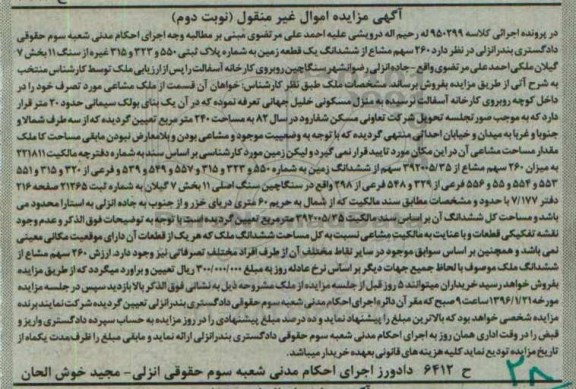 آگهی مزایده اموال غیر منقول (نوبت دوم)
در پرونده اجرائی کلاسه ۹۵۰۲۹۹ له رحیم اله درویشی علیه احمد علی مرتضوی مبنی بر مطالبه وجه اجرای احکام مدنی شعبه سوم حقوقی
دادگستری بندرانزلی در نظر دارد ۲۶۰ سهم مشاع از ششدانگ یک قطعه زمین به شماره پلاک ثبتی ۵۵۰ و ۳۲۳ و ۳۱۵ غیره از سنگ ۱۱ بخش ۷
گیلان ملکی احمد علی مرتضوی واقع - جاده انزلی رضوانشهر سنگاچین روبروی کارخانه آسفالت را پس از ارزیابی ملک توسط کارشناس منتخب
به شرح آتی از طریق مزایده بفروش برساند. مشخصات ملک طبق نظر کارشناس: خواهان آن قسمت از ملک مشاعی مورد تصرف خود را در
داخل کوچه روبروی کارخانه آسفالت نرسیده به منزل مسکونی خلیل جهانی تعرفه نموده که در آن یک بنای بولک سیمانی حدود ۲۰ متر قرار
دارد که به موجب صورتجلسه تحویل شرکت تعاونی مسکن شفارود در سال ۸۲ به مساحت ۲۴۰ متر مربع تعیین گردیده که از سه طرف شمالا و
جنوبا و غربا به میدان و خیابان احداثی منتهی گردیده که با توجه به وضعیت موجود و مشاعی بودن و بلامعارض نبودن مابقی مساحت کا ملک
مقدار مساحت مشاعی آن در این مکان مورد تایید قرار نمی گیرد و لیکن زمین مورد کارشناسی بر اساس سند به شماره دفترچه مالکیت ۲۲۱۸۱۱
به میزان ۲۶۰ سهم مشاع از ۳۹۲۰۰۵/۳۵ سهم از ششدانگ زمین به شماره ۵۵۰ و ۳۲۳ و ۳۱۵ و ۵۵۷ و ۵۴۹ و ۵۳۹ و فرعی از ۳۲۰ و ۳۱۵ و ۵۵۱
۵۵۳ و ۵۵۴ و ۵۵ و ۵۵۶ فرعی از ۳۲۹ و ۵۴۸ فرعی از ۲۹۸ واقع در سنگاچین سنگ اصلی ۱۱ بخش ۷ گیلان به شماره ثبت ۲۱۲۶۵ صفحه ۲۱۶
دفتر ۷/۱۷۷ با حدود و مشخصات مطابق سند مالکیت که از شمال به حریم ۶۰ متری دریای خزر و از جنوب به جاده انزلی به استارا محدود می
باشد و مساحت کل ششدانگ آن بر اساس سند مالکیت ۳۹۲۰۰۵/۳۵ متر مربع تعیین گردیده است با توجه به توضیحات فوق الذکر و عدم وجود
نقشه تفکیکی قطعات و با عنایت به مالکیت مشاعی نسبت به کل مساحت ششدانگ ملک که هر یک از قطعات آن دارای موقعیت مکانی معینی
نمی باشد و همچنین بر اساس سوابق موجود در سایر نقاط مختلف آن از طرف افراد مختلف تصرفاتی نیز وجود دارد. ارزش ۲۶۰ سهم مشاع از
ششدانگ ملک موصوف با لحاظ جمیع جهات دیگر بر اساس نرخ عادله روز به مبلغ ۳۰۰/۰۰۰/۰۰۰ ریال تعیین و براورد میگردد که از طریق مزایده
بفروش خواهد رسید خریداران میتوانند ۵ روز قبل از جلسه مزایده از ملک مشروحه ذیل به نشانی فوق الذکر بالا بازدید سپس در جلسه مزایده
مورخه ۱۳۹۶/۷/۲۱ ساعت ۹ صبح که مقر آن دائره اجرای احکام مدنی شعبه سوم حقوقی دادگستری بندرانزلی تعیین گردیده شرکت نمایند برنده
مزایده شخصی خواهد بود که بالاترین مبلغ را پیشنهاد نماید و ده درصد مبلغ پیشنهادی را در روز مزایده به حساب سپرده دادگستری واریز و
قبض را در وقت اداری همان روز به اجرای احکام مدنی شعبه سوم حقوقی دادگستری بندرانزلی ارائه نماید و مابقی مبلغ را ظرف مدت یکماه از
تاریخ مزایده تودیع نماید کلیه هزینه های قانونی بعهده خریدار میباشد.
ح ۶۴۱۲ دادورز اجرای احکام مدنی شعبه سوم حقوقی انزلی- مجید خوش الحان